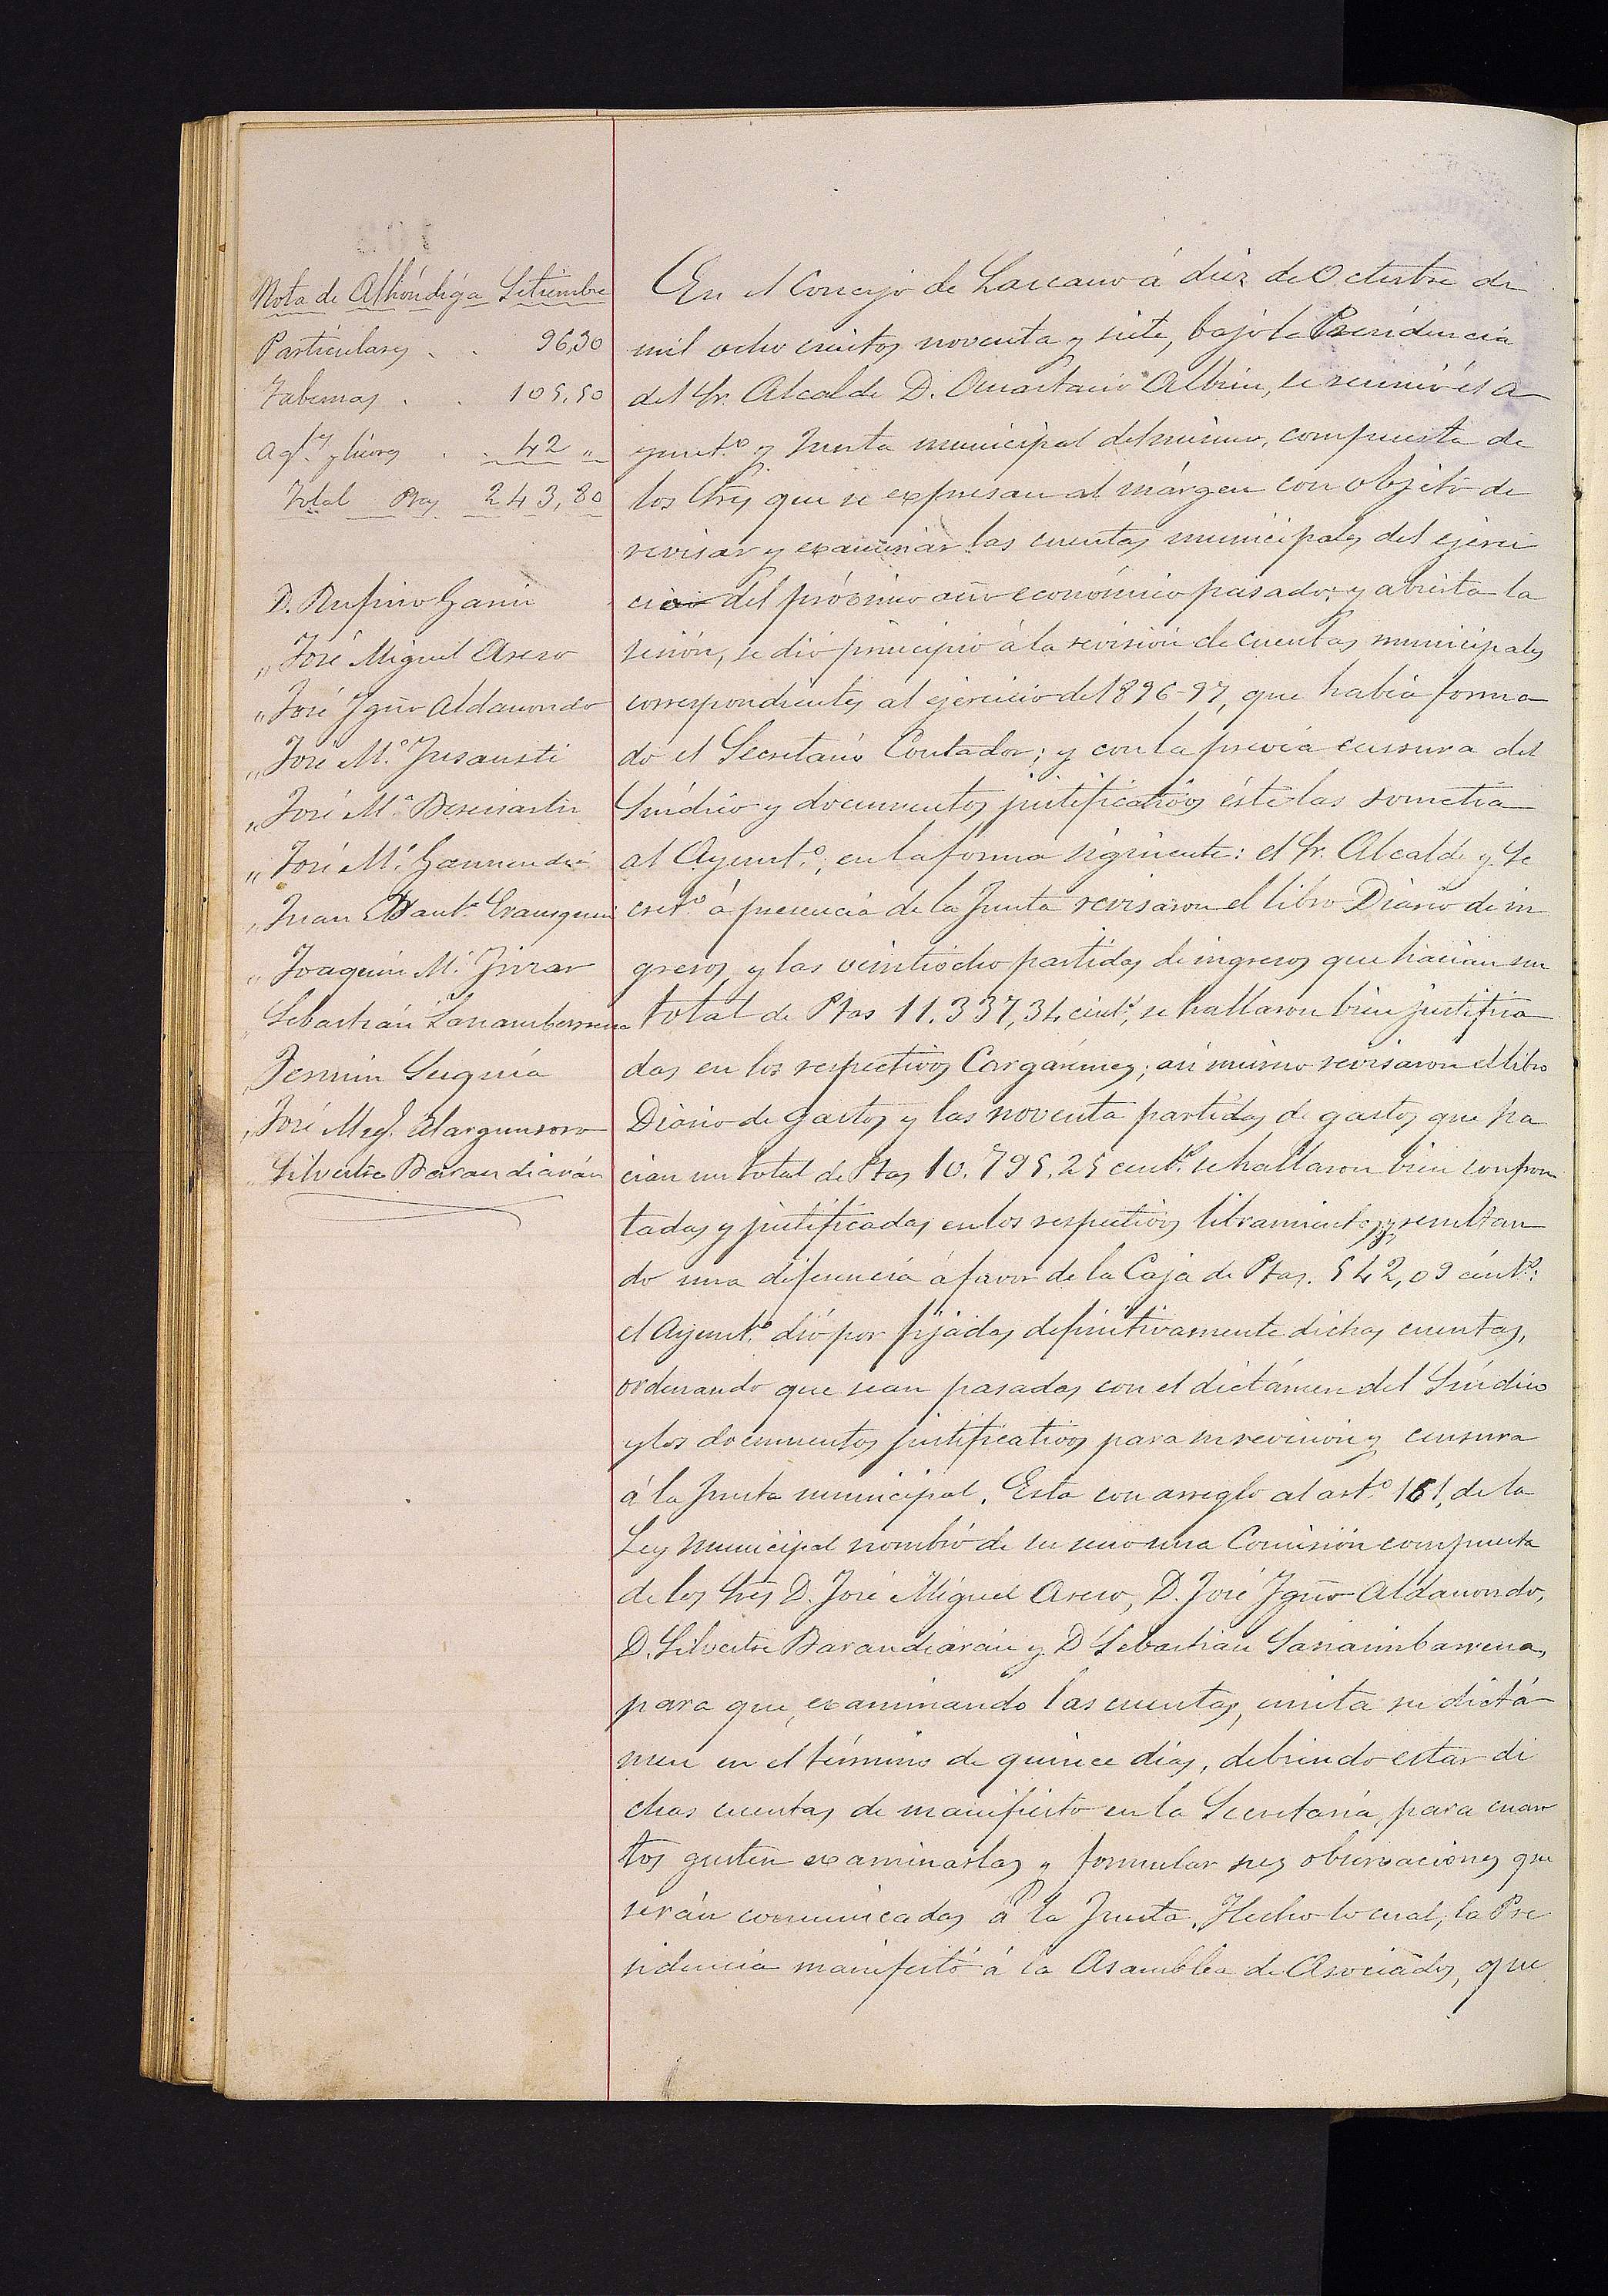 Nota de Alhóndiga Setiembre
Particulares . . 96,30
Tabernas . . 105,50
Agtes y licores . . 42 "
Total Ptas 243,80
D. Rufino Garin
" José Miguel Asero
" José Ygno Aldanondo
" José Ma Jusausti
" José Ma
" José Ma Garmendia
" Juan Bauta
" Joaquin Ma
Sebastián Sarasimbarrena
Fermin Seguia
José Migl
Silvestre Barandiarán
En el Concejo de Lazcano á diez de Octubre de
mil ocho cientos noventa y siete, bajo la Presidencia
del Sr. Alcalde D. Anastacio Albin, se reunió el A
yuntº y Junta municipal del mismo, compuesta de
los Sres que se expresan al márgen con objeto de
revisar y examinar las cuentas municipales del ejerci
cio del próximo año económico pasado; y abierta la
sesión, se dió principio á la revisión de cuentas municipales
correspondientes al ejercicio del 896-97, que habia forma
do el Secretario Contador; y con la previa censura del
Síndico y documentos justificativos éste las sometia
al Ayuntº, en la forma siguiente: el Sr. Alcalde y Se
cretº á presencia de la Junta revisaron el libro Diario de in
gresos y las veintiocho partidas de ingresos que hacian un
total de Ptas 11.337,34 cents, se hallaron bien justifica
das en los respectivos Cargarémes; asi mismo revisaron el libro
Diario de gastos y las noventa partidas de gastos que ha
cian un total de Ptas 10.795,25 cents se hallaron bien confron
tadas y justificadas en los respectivos libramientos, y resultan
do una diferencia á favor de la Caja de Ptas. 542,09 cénts:
el Ayuntº dió por fijadas definitivamente dichas cuentas,
ordenando que sean pasadas con el dictámen del Síndico
y los documentos justificativos para su revision y censura
á la Junta municipal. Esta con arreglo al artº 161, de la
Ley Municipal nombró de su seno una Comisión compuesta
de los Sres D. José Miguel Asero, D. José Ygno Aldanondo,
D. Silvestre Barandiarán y D Sebastian Sarasimbarrena,
para que, examinando las cuentas, emita su dictá
men en el término de quince dias, debiendo estar di
chas cuentas de manifiesto en la Secretaría, para cuan
tos gusten examinarlas y formular sus observaciones que
serán comunicadas á la Junta. Hecho lo cual, la Pre
sidencia manifestó á la Asamblea de Asociados, que